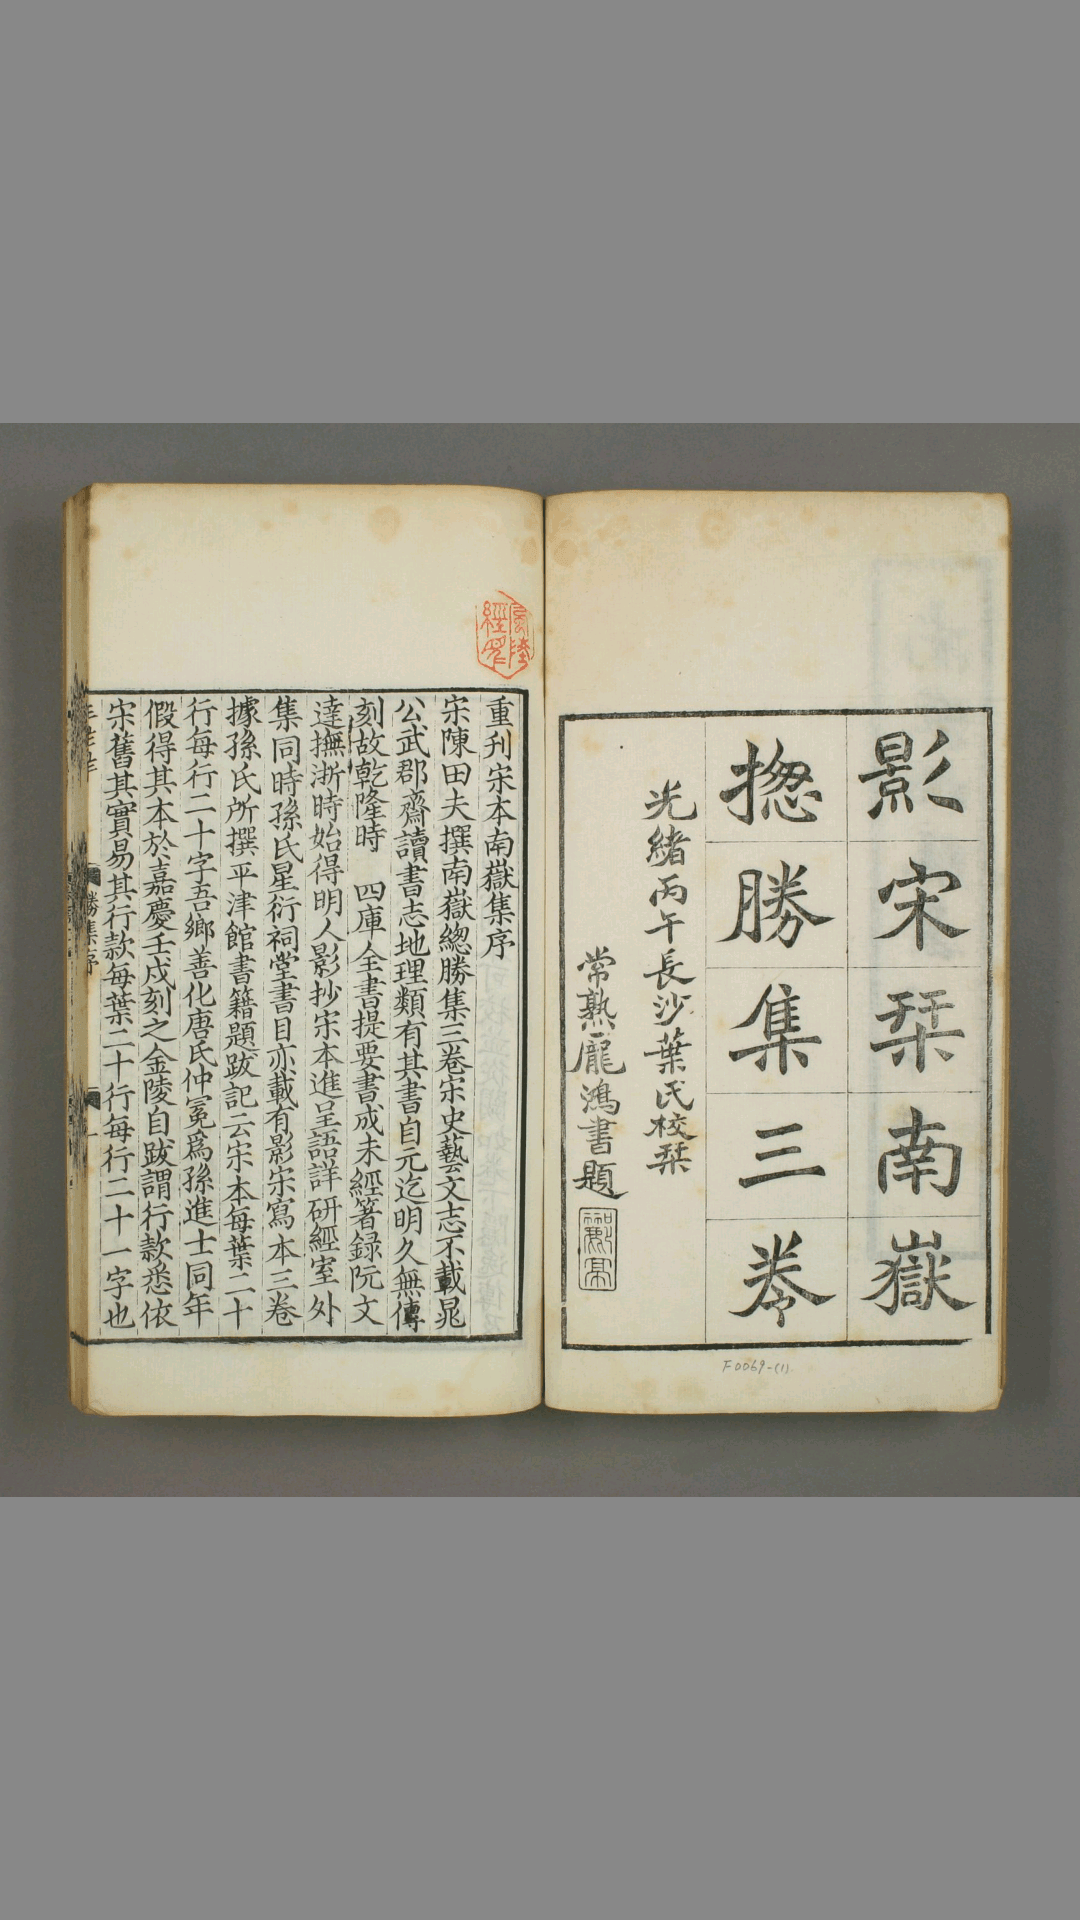 影宋栞南嶽
揔勝集三卷
光緒丙午長沙葉氏校栞
常熟龐鴻書題
F0069-(1)
重刊宋本南嶽集序
宋陳田夫撰南嶽總勝集三卷宋史藝文志不載晁
公武郡齋讀書志地理類有其書自元迄明久無傳
刻故乾隆時 四庫全書提要書成未經箸録阮文
達撫浙時始得明人影抄宋本進呈語詳研經室外
集同時孫氏星衍祠堂書目亦載有影宋寫本三卷
據孫氏所撰平津館書籍題跋記云宋本每葉二十
行每行二十字吾鄉善化唐氏仲冕爲孫進士同年
假得其本於嘉慶壬戌刻之金陵自跋謂行款悉依
宋舊其實易其行款每葉二十行每行二十一字也
勝集序
一